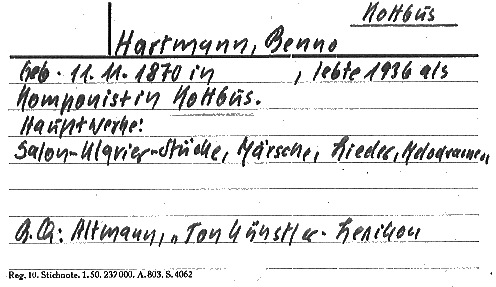 Kottbus
Hartmann, Benno
Geb. 11.11.1870 in      , lebte 1936 als
Komponist in Kottbus.
Hauptwerke:
Salon-Klavier-Stücke, Märsche, Lieder, Melodramen
A.Qu: Altmann, „Tonkünstler-Lexikon
Reg. 10. Stichnote. 1. 50. 237 000. A. 803. S. 4062